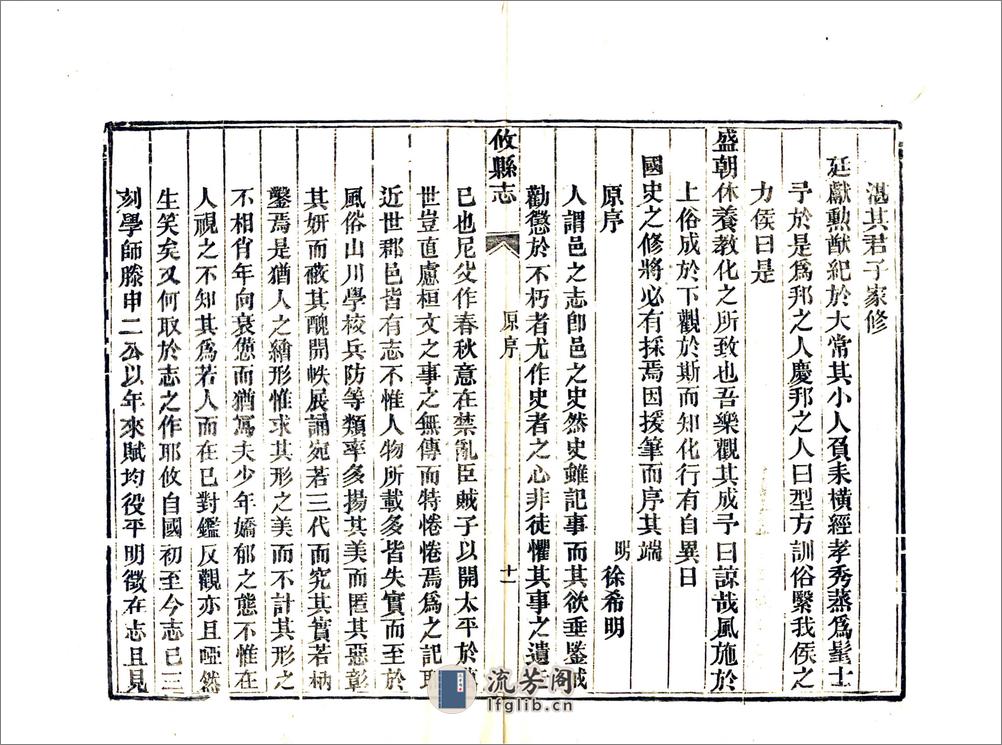 湛其君子家修
廷獻勲猷紀於大常其小人負耒橫經孝秀蒸爲髦士
予於是爲邦之人慶邦之人曰型方訓俗繄我侯之
力侯曰是
盛朝休養教化之所致也吾樂觀其成予曰諒哉風施於
上俗成於下觀於斯而知化行有自異日
國史之修將必有採焉因援筆而序其端
原序 明 徐希明
人謂邑之志卽邑之史然史雖記事而其欲垂鑒誡
勸懲於不朽者尤作史者之心非徒懼其事之遺
攸縣志 原序 十一
已也尼父作春秋意在禁亂臣賊子以開太平於
世豈直慮桓文之事之無傳而特惓惓焉爲之記
近世郡邑皆有志不惟人物所載多皆失實而至於
風俗山川學校兵防等類率多揚其美而匿其惡彰
其妍而蔽其醜開帙展誦宛若三代而究其實若枘
鑿焉是猶人之繪形惟求其形之美而不計其形之
不相肖年向衰憊而猶寫夫少年嬌郁之態不惟在
人視之不知其爲若人而在已對鑑反觀亦且啞然
生笑矣又何取於志之作耶攸自國初至今志已三
刻學師滕申二公以年來賦均役平明徵在志且見
流芳阁
lfglib.cn